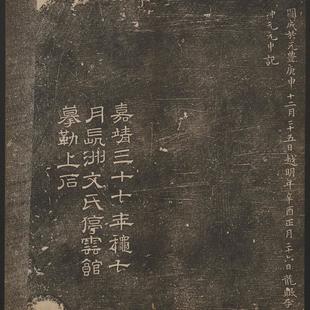 圖成於元豐庚申十二月二十五日越明年辛酉正月二十六日龍眠李
沖元元中記
嘉靖三十七年穐七
月長洲文氏停雲館
摹勒上石